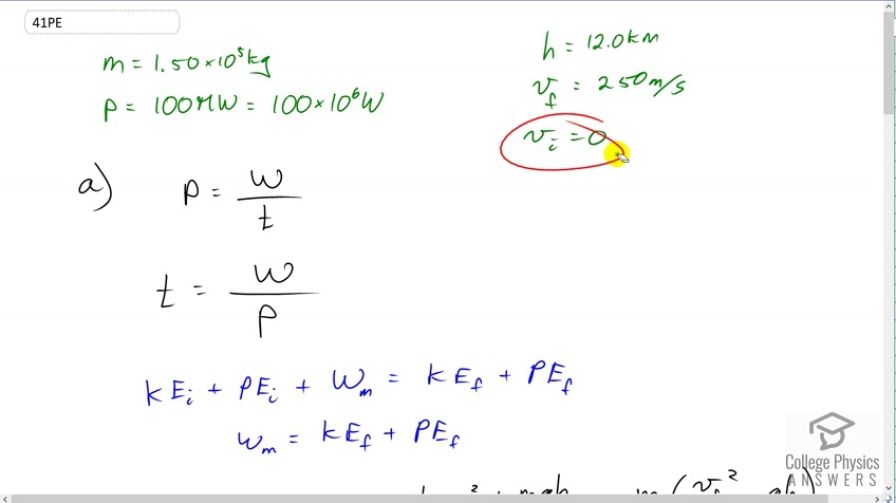 41PE
m = 1.50 × 10⁵ kg
P = 100 MW = 100 × 10⁶ W
h = 12.0 km
v_f = 250 m/s
v_i = 0
a) P = W/t
t = W/P
KE_i + PE_i + W_m = KE_f + PE_f
W_m = KE_f + PE_f
College Physics
ANSWERS